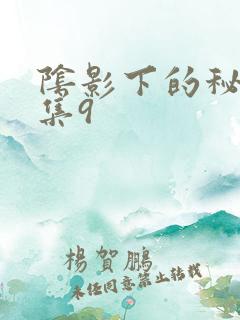 陰影下的秘
集9
楊賀鵬
未經同意禁止轉載